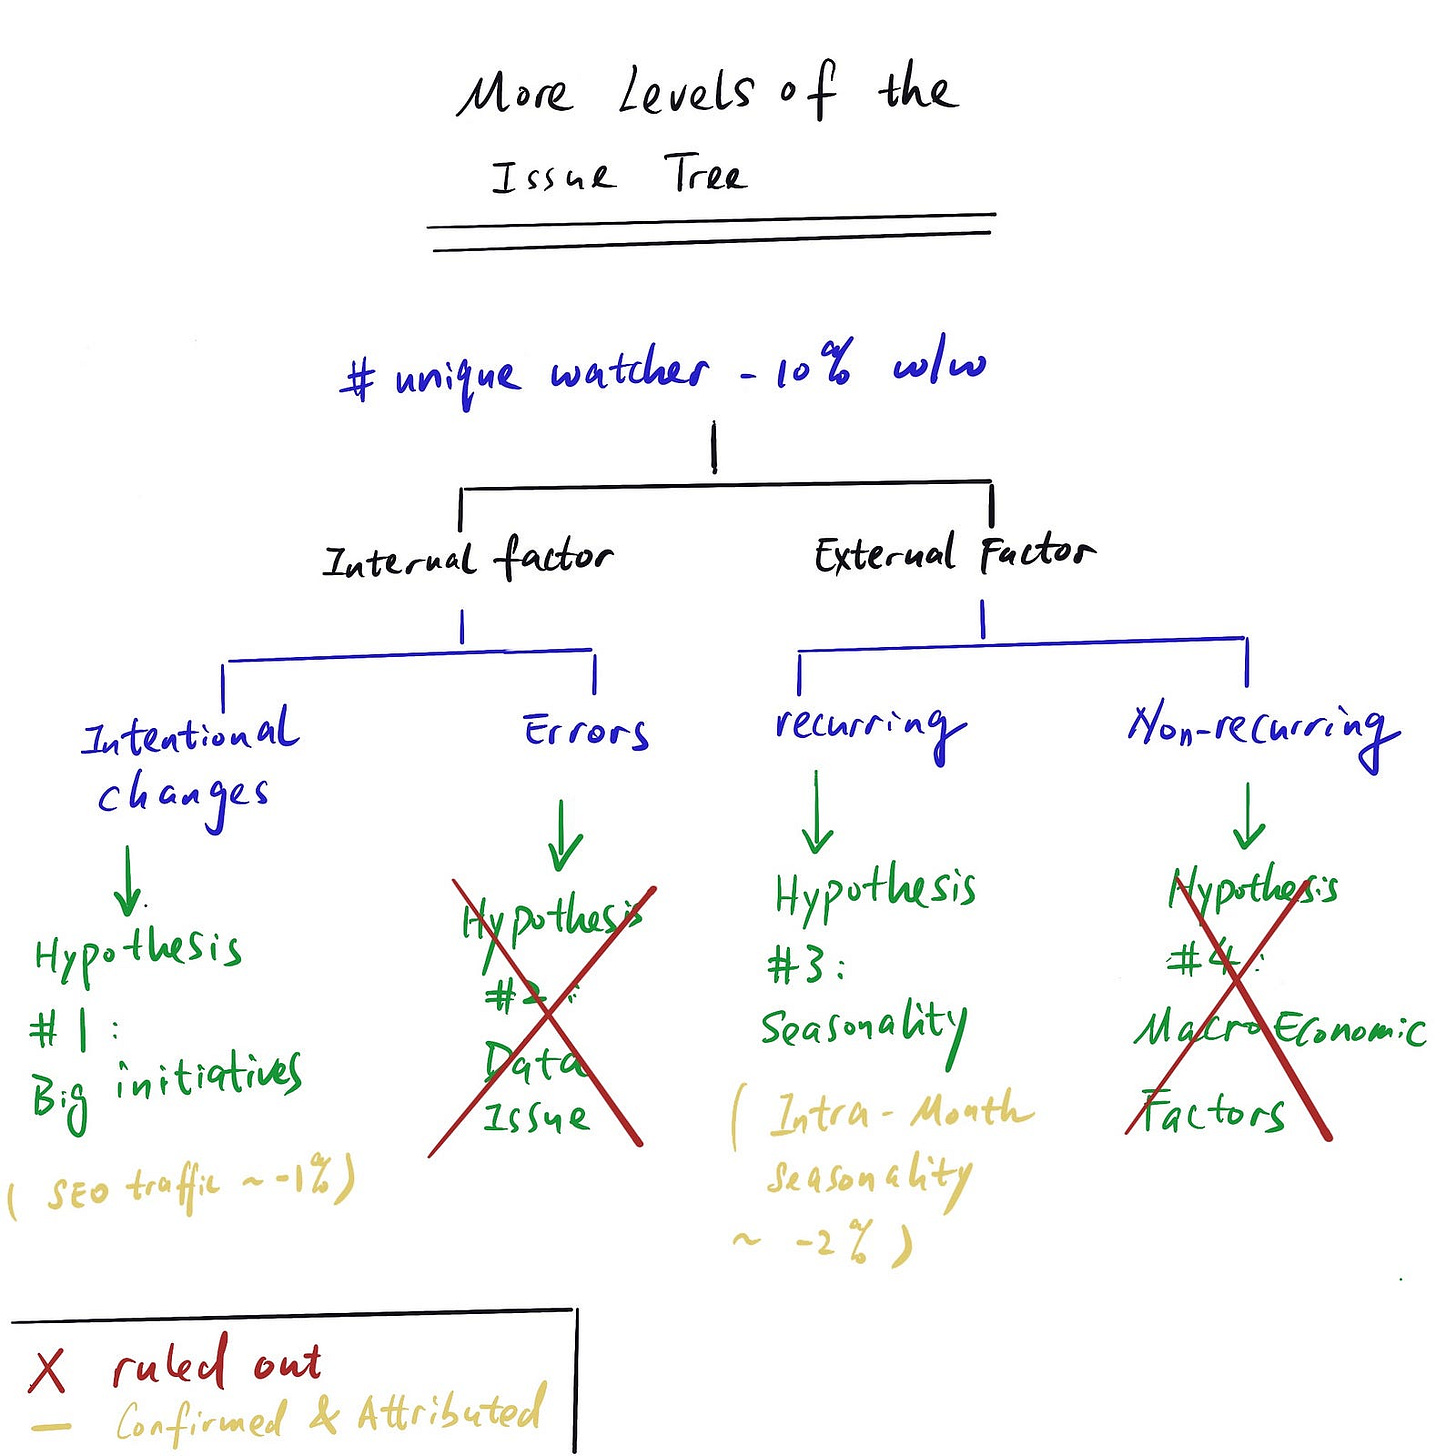 More Levels of the
Issue Tree
# unique watcher - 10% w/w
Internal factor
External Factor
Intentional
changes
Errors
recurring
Non-recurring
Hypothesis
#1:
Big initiatives
( SEO traffic ~ -1%)
Hypothesis
#2:
Data
Issue
Hypothesis
#3:
Seasonality
( Intra-Month
Seasonality
~ -2%)
Hypothesis
#4:
Macro Economic
Factors
X ruled out
— Confirmed & Attributed